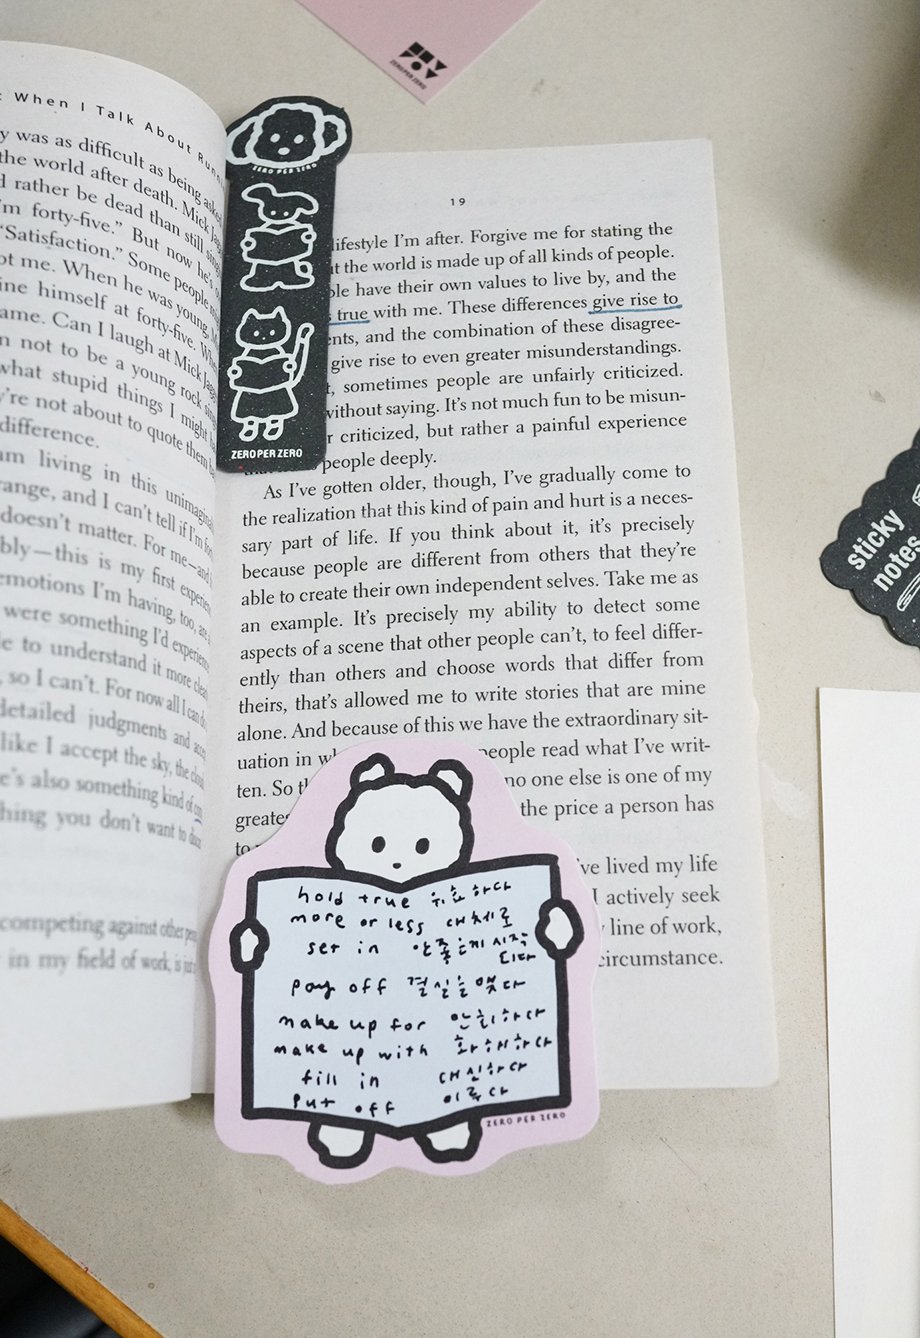 When I Talk About Runn
y was as difficult as being asked
the world after death. Mick Jag
d rather be dead than still sing
'm forty-five." But now he's o
"Satisfaction." Some people m
ot me. When he was young,
ine himself at forty-five. Wh
ame. Can I laugh at Mick Jagg
n not to be a young rock sing
what stupid things I might ha
're not about to quote them b
difference.
am living in this unimagina
range, and I can't tell if I'm
doesn't matter. For me—and
bly—this is my first experien
emotions I'm having, too, are a
were something I'd experien
e to understand it more clear
, so I can't. For now all I can do
detailed judgments and acc
like I accept the sky, the clou
e's also something kind of
hing you don't want to
competing against other peo
in my field of work, is just
19
lifestyle I'm after. Forgive me for stating the
t the world is made up of all kinds of people.
ple have their own values to live by, and the
s true with me. These differences give rise to
ents, and the combination of these disagree-
give rise to even greater misunderstandings.
t, sometimes people are unfairly criticized.
without saying. It's not much fun to be misun-
r criticized, but rather a painful experience
people deeply.
As I've gotten older, though, I've gradually come to
the realization that this kind of pain and hurt is a neces-
sary part of life. If you think about it, it's precisely
because people are different from others that they're
able to create their own independent selves. Take me as
an example. It's precisely my ability to detect some
aspects of a scene that other people can't, to feel differ-
ently than others and choose words that differ from
theirs, that's allowed me to write stories that are mine
alone. And because of this we have the extraordinary sit-
uation in wh people read what I've writ-
ten. So th no one else is one of my
greates the price a person has
to
've lived my life
I actively seek
y line of work,
circumstance.
ZERO PER ZERO
ZERO PER ZERO
ZERO PER ZERO
sticky
notes
hold true 유효하다
more or less 대체로
set in 안좋은게 시작
되다
pay off 결실을 맺다
make up for 만회하다
make up with 화해하다
fill in 대신하다
put off 미루다
ZERO PER ZERO